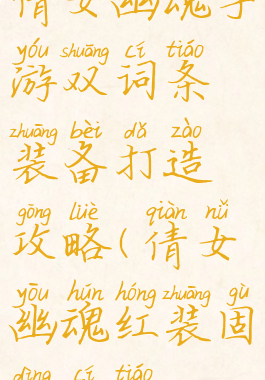 倩女幽魂手
yóu shuāng cí tiáo
游双词条
zhuāng bèi dǎ zào
装备打造
gōng lüè qiàn nǚ
攻略(倩女
yōu hún hóng zhuāng gù
幽魂红装固
dìng cí tiáo